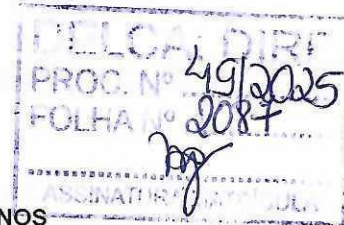 DELCA/DIRF
PROC. Nº 49/2025
FOLHA Nº 2087
ASSINATURA/MATRÍCULA
NOS